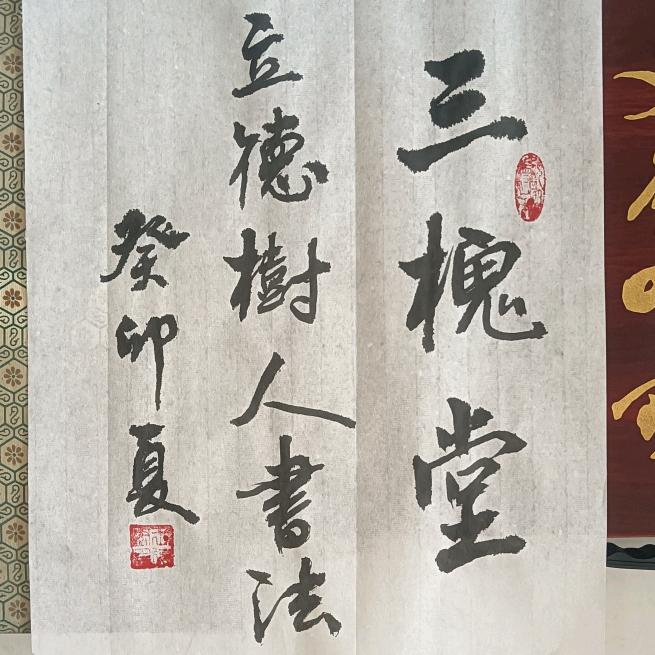 三槐堂
立德樹人書法
癸卯夏